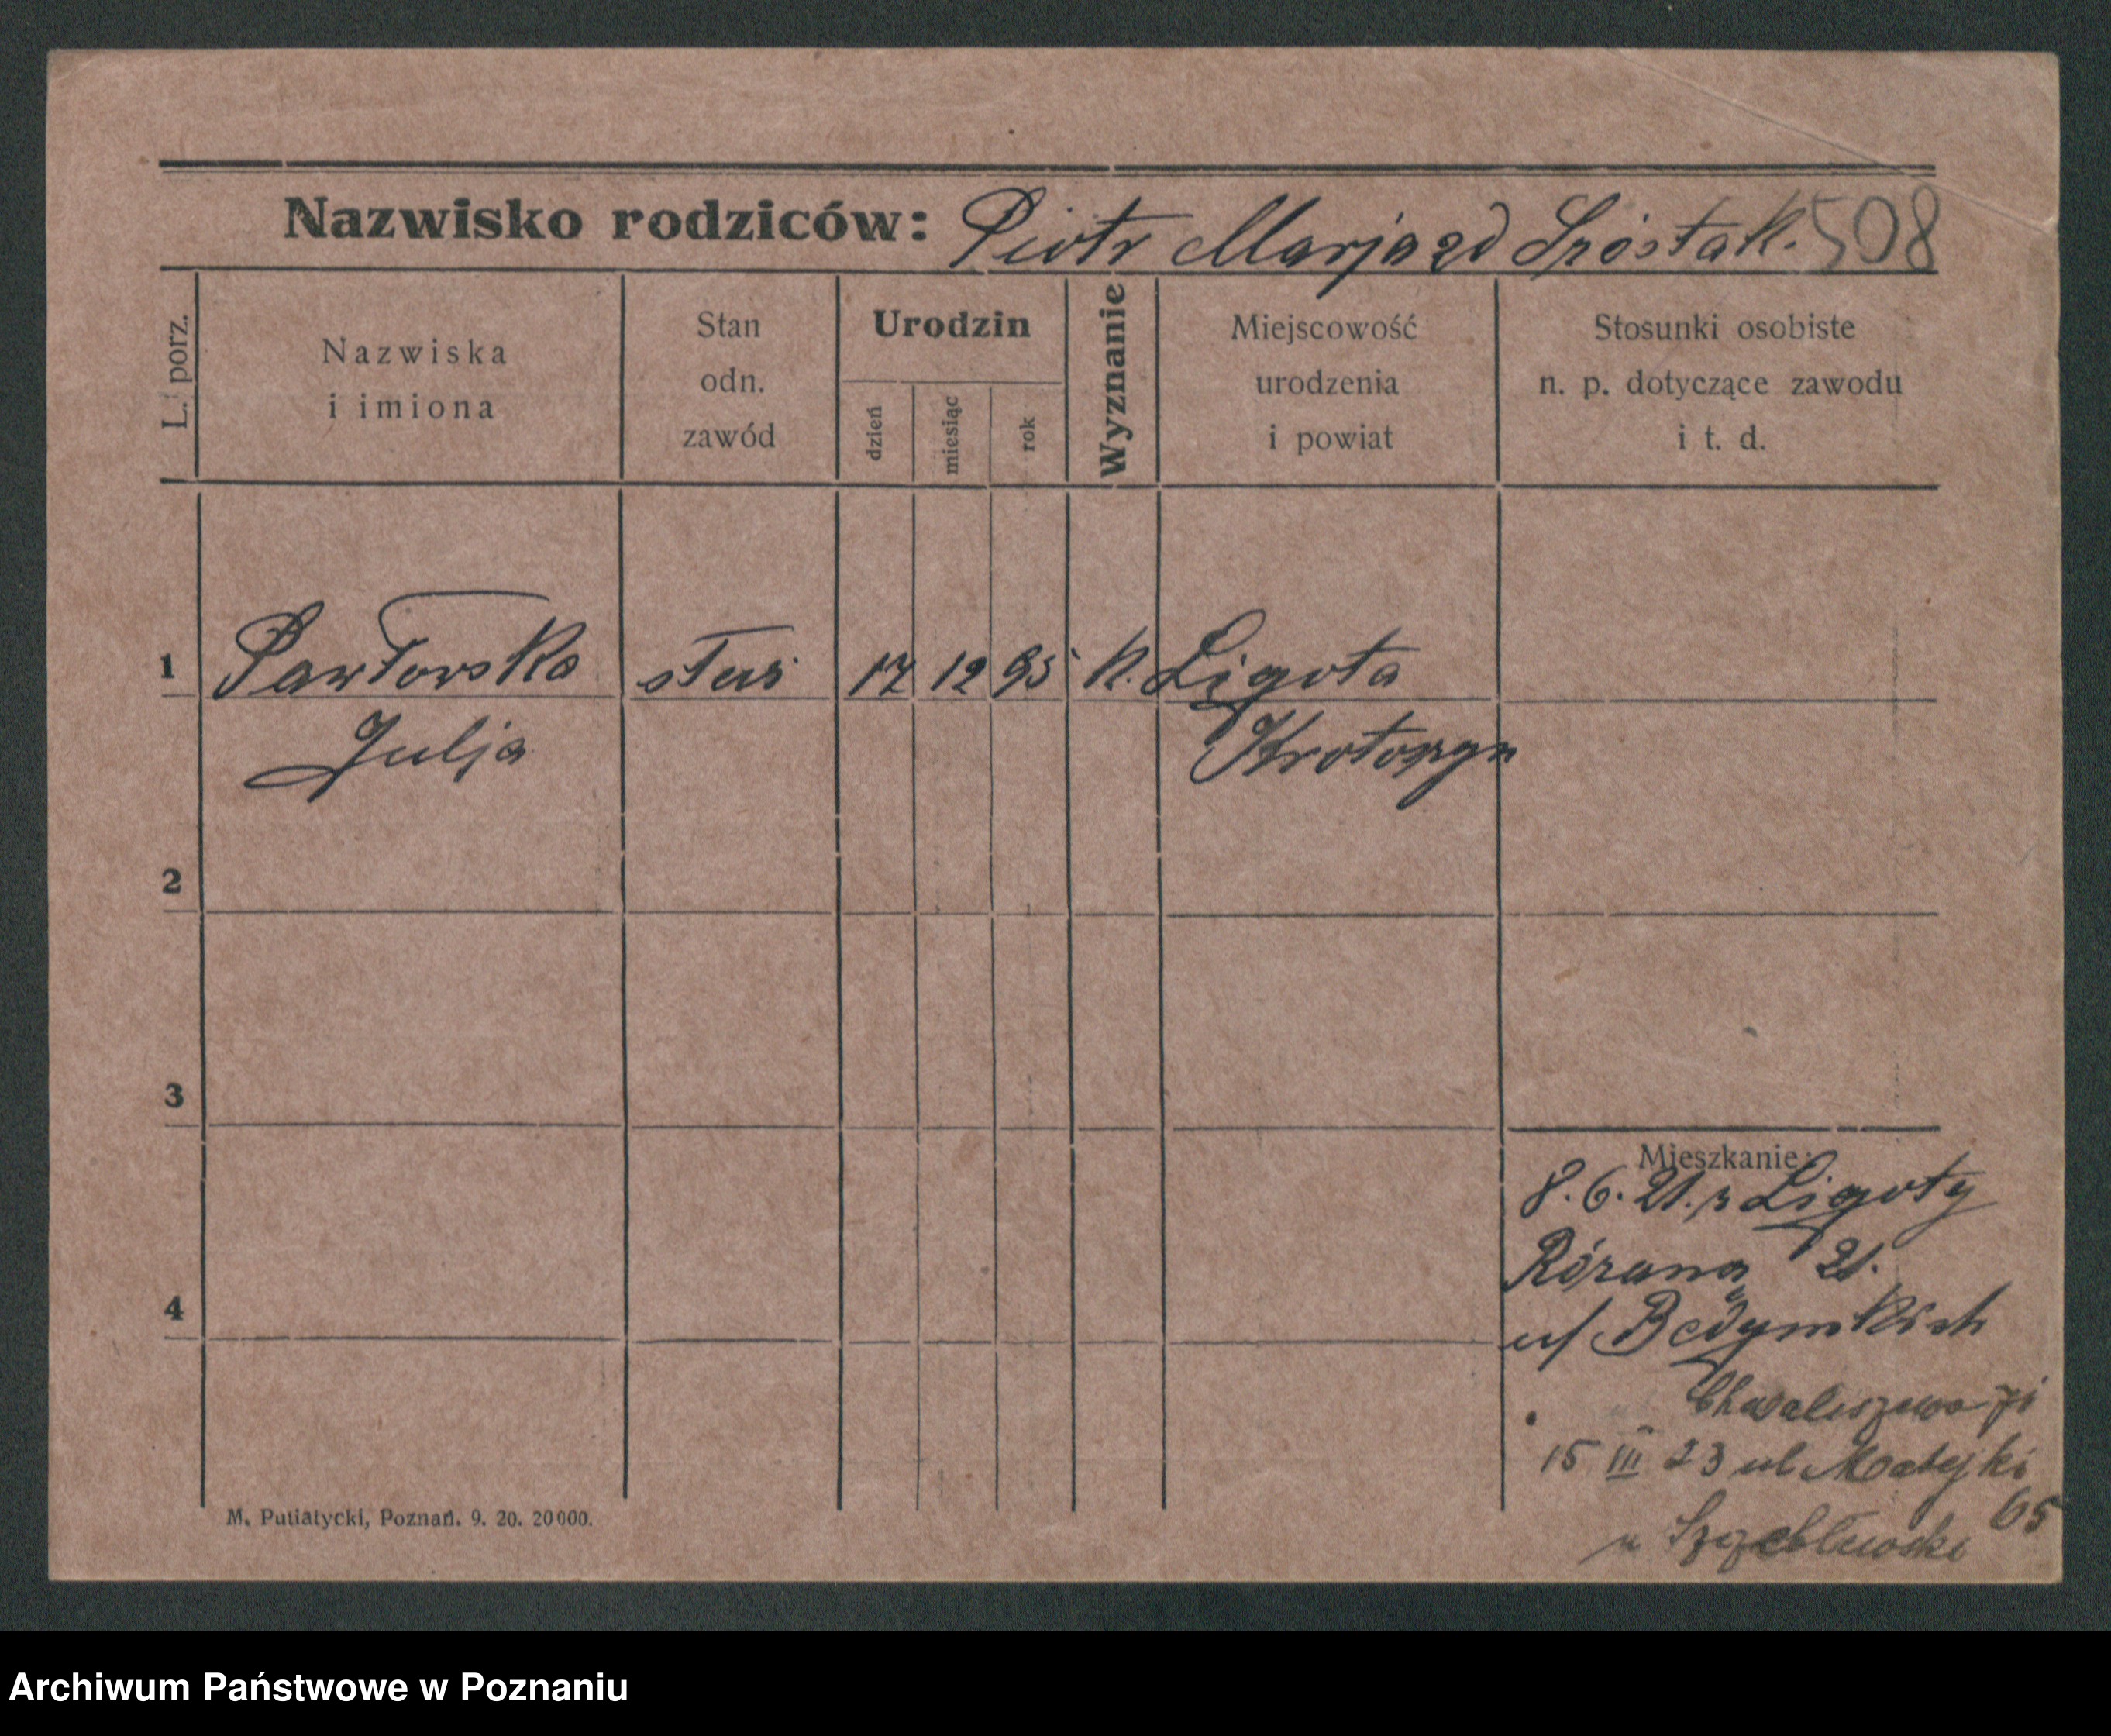 Nazwisko rodziców: Piotr Marja zd Szóstak. 508
L. porz.
Nazwiska
i imiona
Stan
odn.
zawód
Urodzin
dzień
miesiąc
rok
Wyznanie
Miejscowość
urodzenia
i powiat
Stosunki osobiste
n. p. dotyczące zawodu
i t. d.
1 Pawłowska służ 17 12 95 k. Ligota
Julja Krotoszyn
2
3
4
Mieszkanie:
8.6.21. z Ligoty
Różana 21.
u/
Chwaliszewo 71
15 III 23 ul Matejki
65
u
M. Putiatycki, Poznań. 9. 20. 20000.
Archiwum Państwowe w Poznaniu